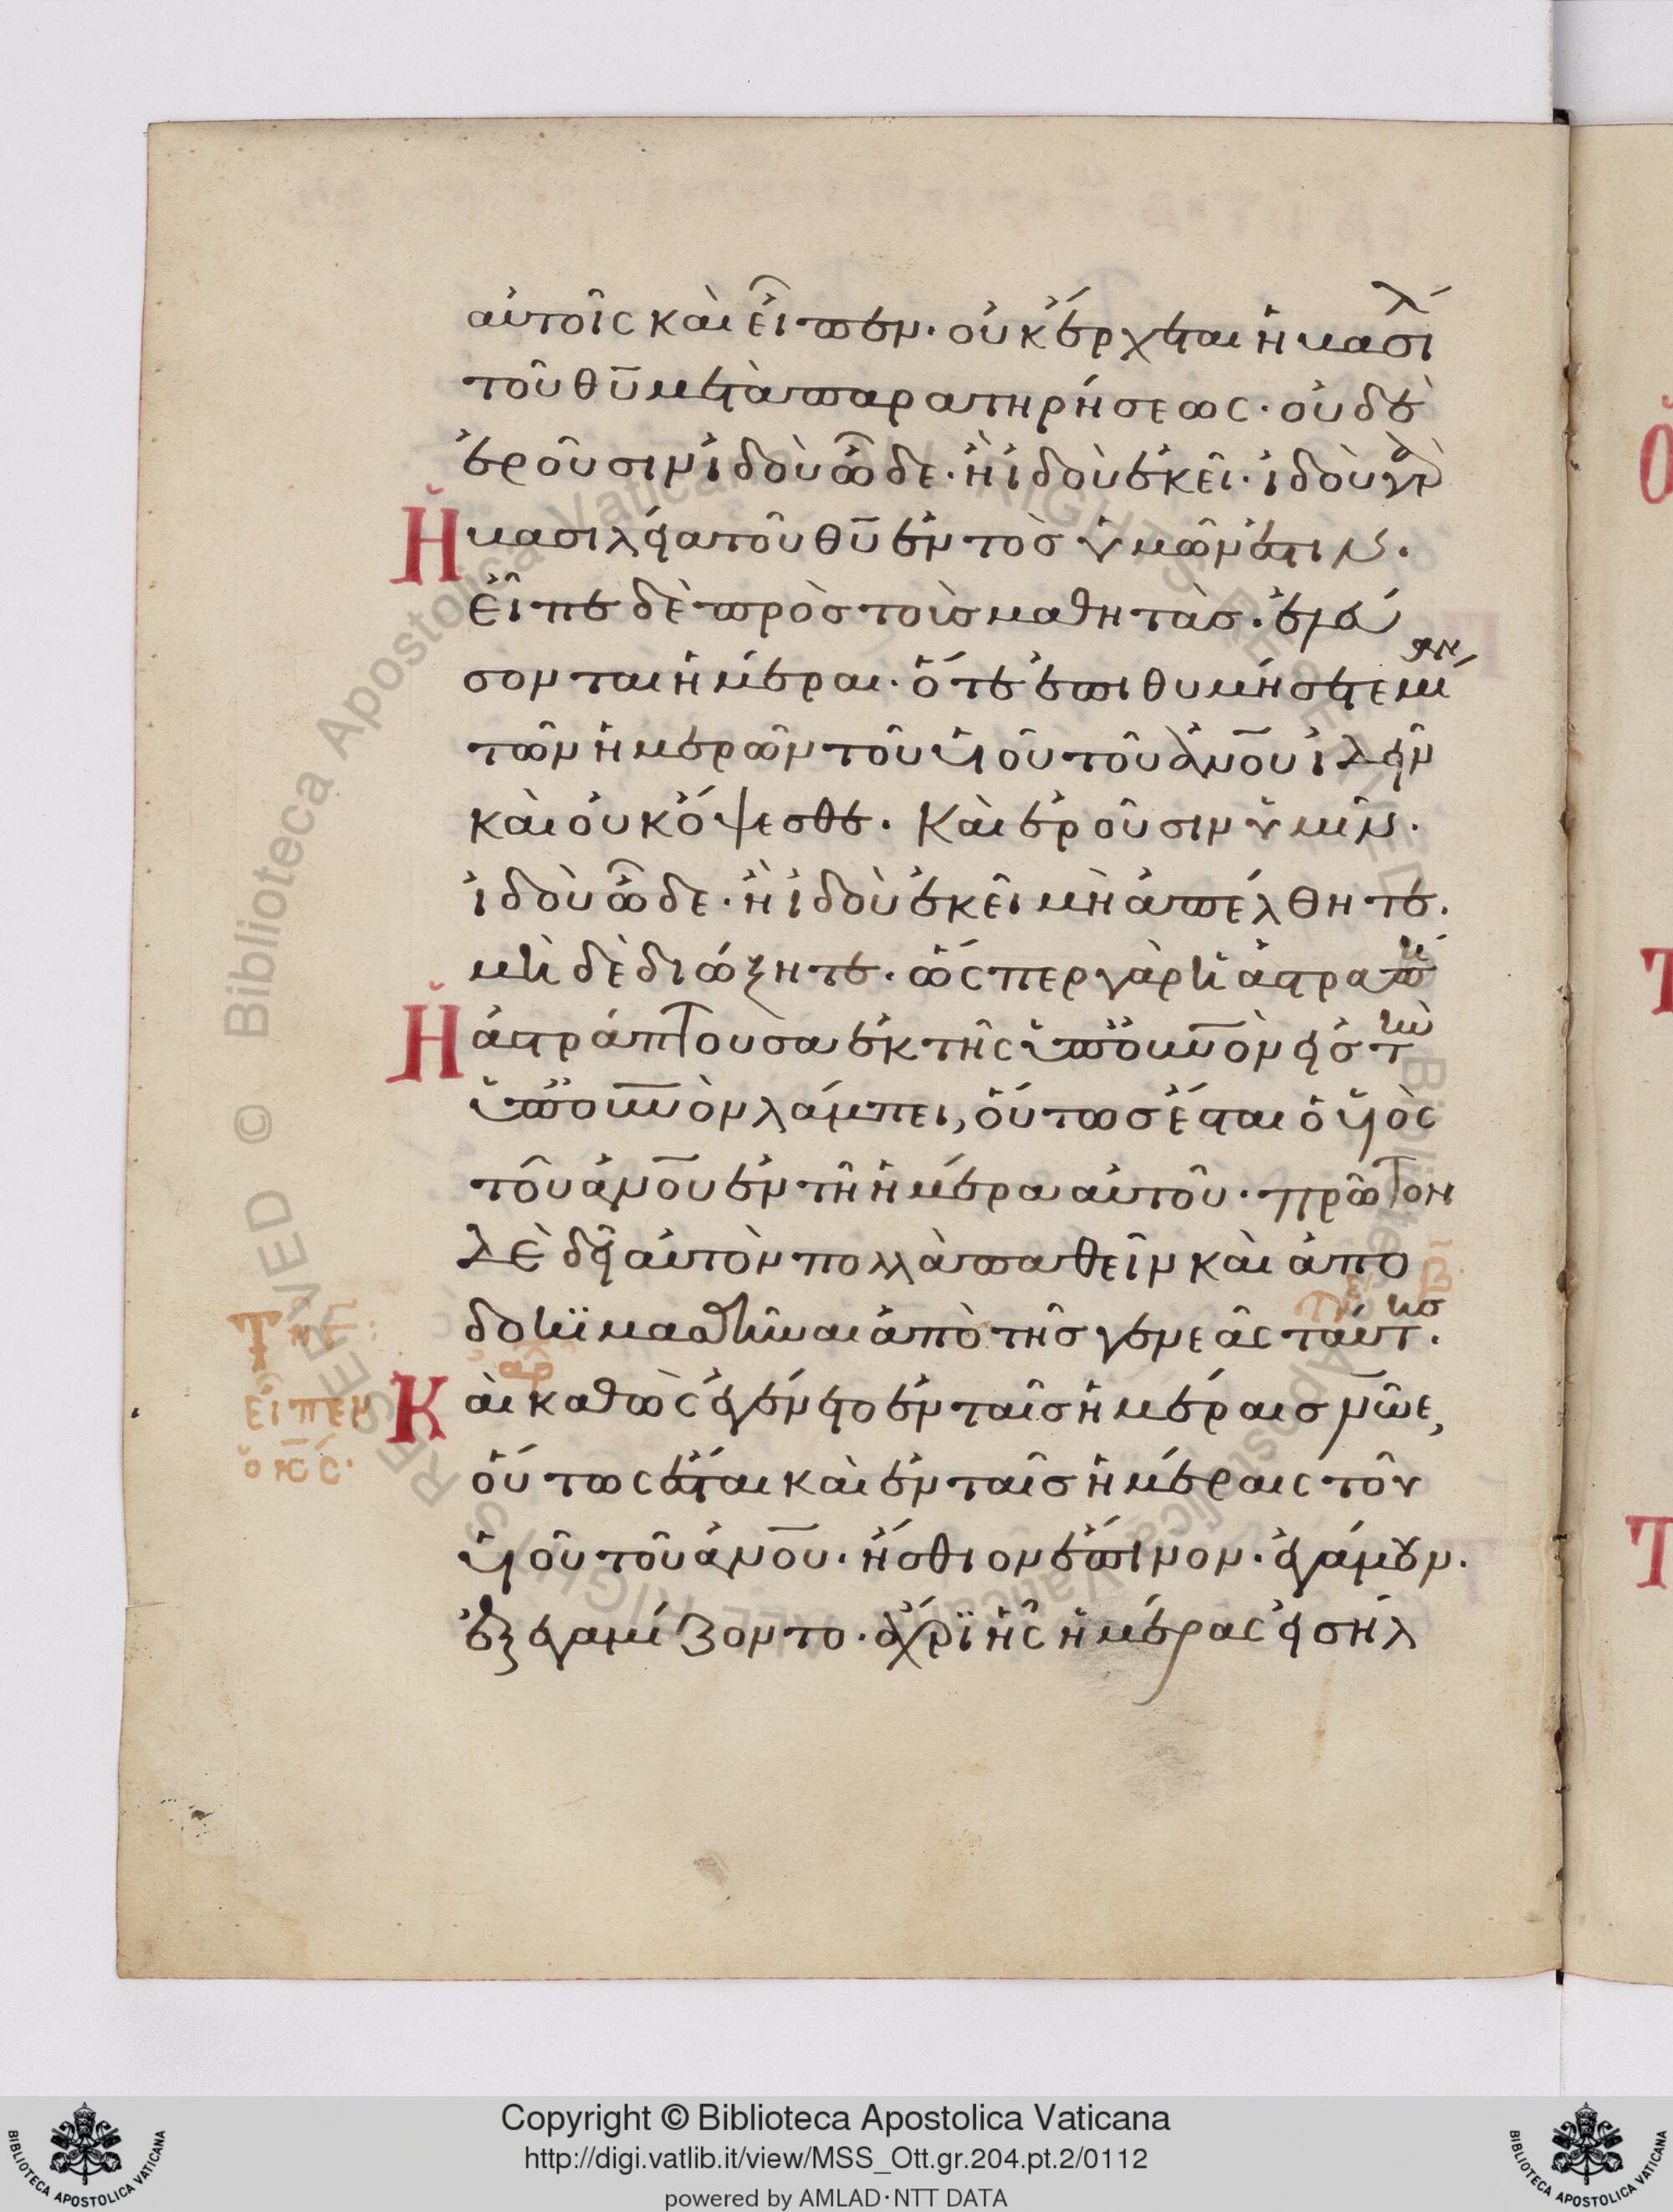 αὐτοῖς καὶ εἶπεν· οὐκ ἔρχεται ἡ βασιλ
τοῦ θῡ μετὰ παρατηρήσεως· οὐδὲ
ἐροῦσιν ἰδοὺ ὧδε· ἢ ἰδοὺ ἐκεῖ· ἰδοὺ γὰρ
Ἡ βασιλεία τοῦ θῡ ἐντὸς ὑμῶν ἐστιν·
εἶπε δὲ πρὸς τοὺς μαθητὰς· ἐλεύ
σονται ἡμέραι· ὅτε ἐπιθυμήσετε μίαν
τῶν ἡμερῶν τοῦ υἱοῦ τοῦ ἀνο̄υ ἰδεῖν
καὶ οὐκ ὄψεσθε· Καὶ ἐροῦσιν ὑμῖν·
ἰδοὺ ὧδε· ἢ ἰδοὺ ἐκεῖ μὴ ἀπέλθητε·
μὴ δὲ διώξητε· ὥσπερ γὰρ ἡ ἀστραπὴ
Ἡ ἀστράπτουσα ἐκ τῆς ὑπ' οὐνο̄ν εἰς τὴν
ὑπ' οὐνο̄ν λάμπει, οὕτως ἔσται ὁ υἱὸς
τοῦ ἀνο̄υ ἐν τῇ ἡμέρα αὐτοῦ· πρῶτον
δὲ δεῖ αὐτὸν πολλὰ παθεῖν καὶ ἀπο
δοκϊμασθῆναι ἀπὸ τῆς γενεᾶς ταύτης·
Καὶ καθὼς ἐγένετο ἐν ταῖς ἡμέραις νῶε,
εἶπεν
ὁ κ̄ς·
οὕτως ἔσται καὶ ἐν ταῖς ἡμέραις τοῦ
υἱοῦ τοῦ ἀνο̄υ· ἤσθιον ἔπινον· ἐγάμουν·
ἐξεγαμίζοντο· ἄχρϊ ἧς ἡμέρας εἰσῆλ
Copyright © Biblioteca Apostolica Vaticana
http://digi.vatlib.it/view/MSS_Ott.gr.204.pt.2/0112
powered by AMLAD·NTT DATA
BIBLIOTECA APOSTOLICA VATICANA
BIBLIOTECA APOSTOLICA VATICANA